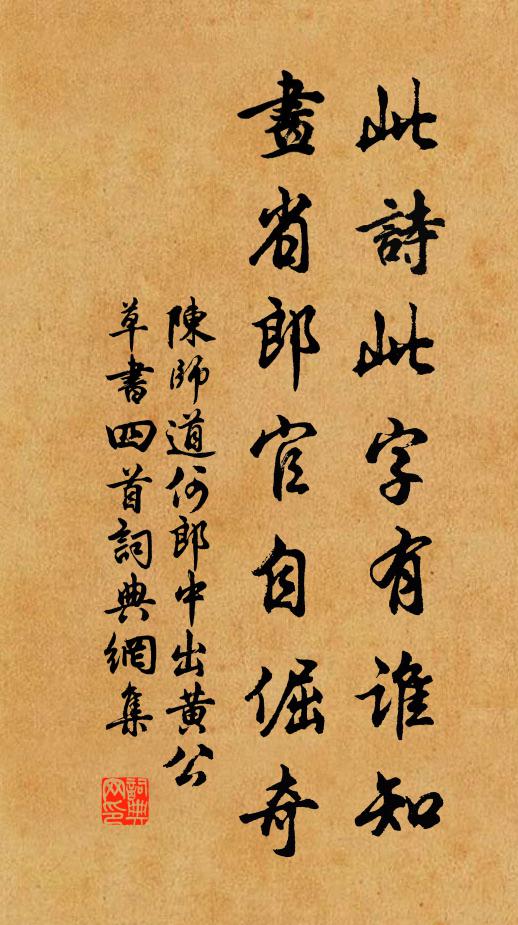 此詩此字有誰知
畫省郎官自倔奇
陳師道何郎中出黃公
草書四首詞典網集
詞典
网印